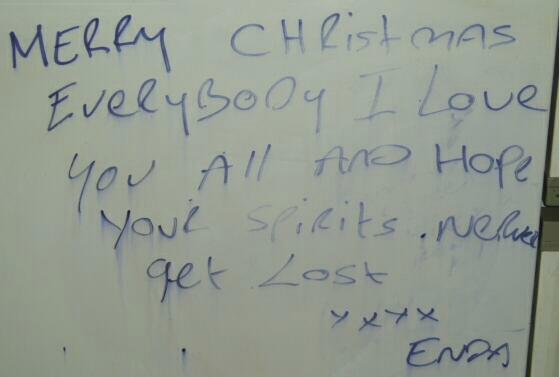 MERRY CHRistmAS
EveRyBODy I Love
you All AND Hope
youR SpiRits .NeRveR
get Lost
xxxx
ENDA